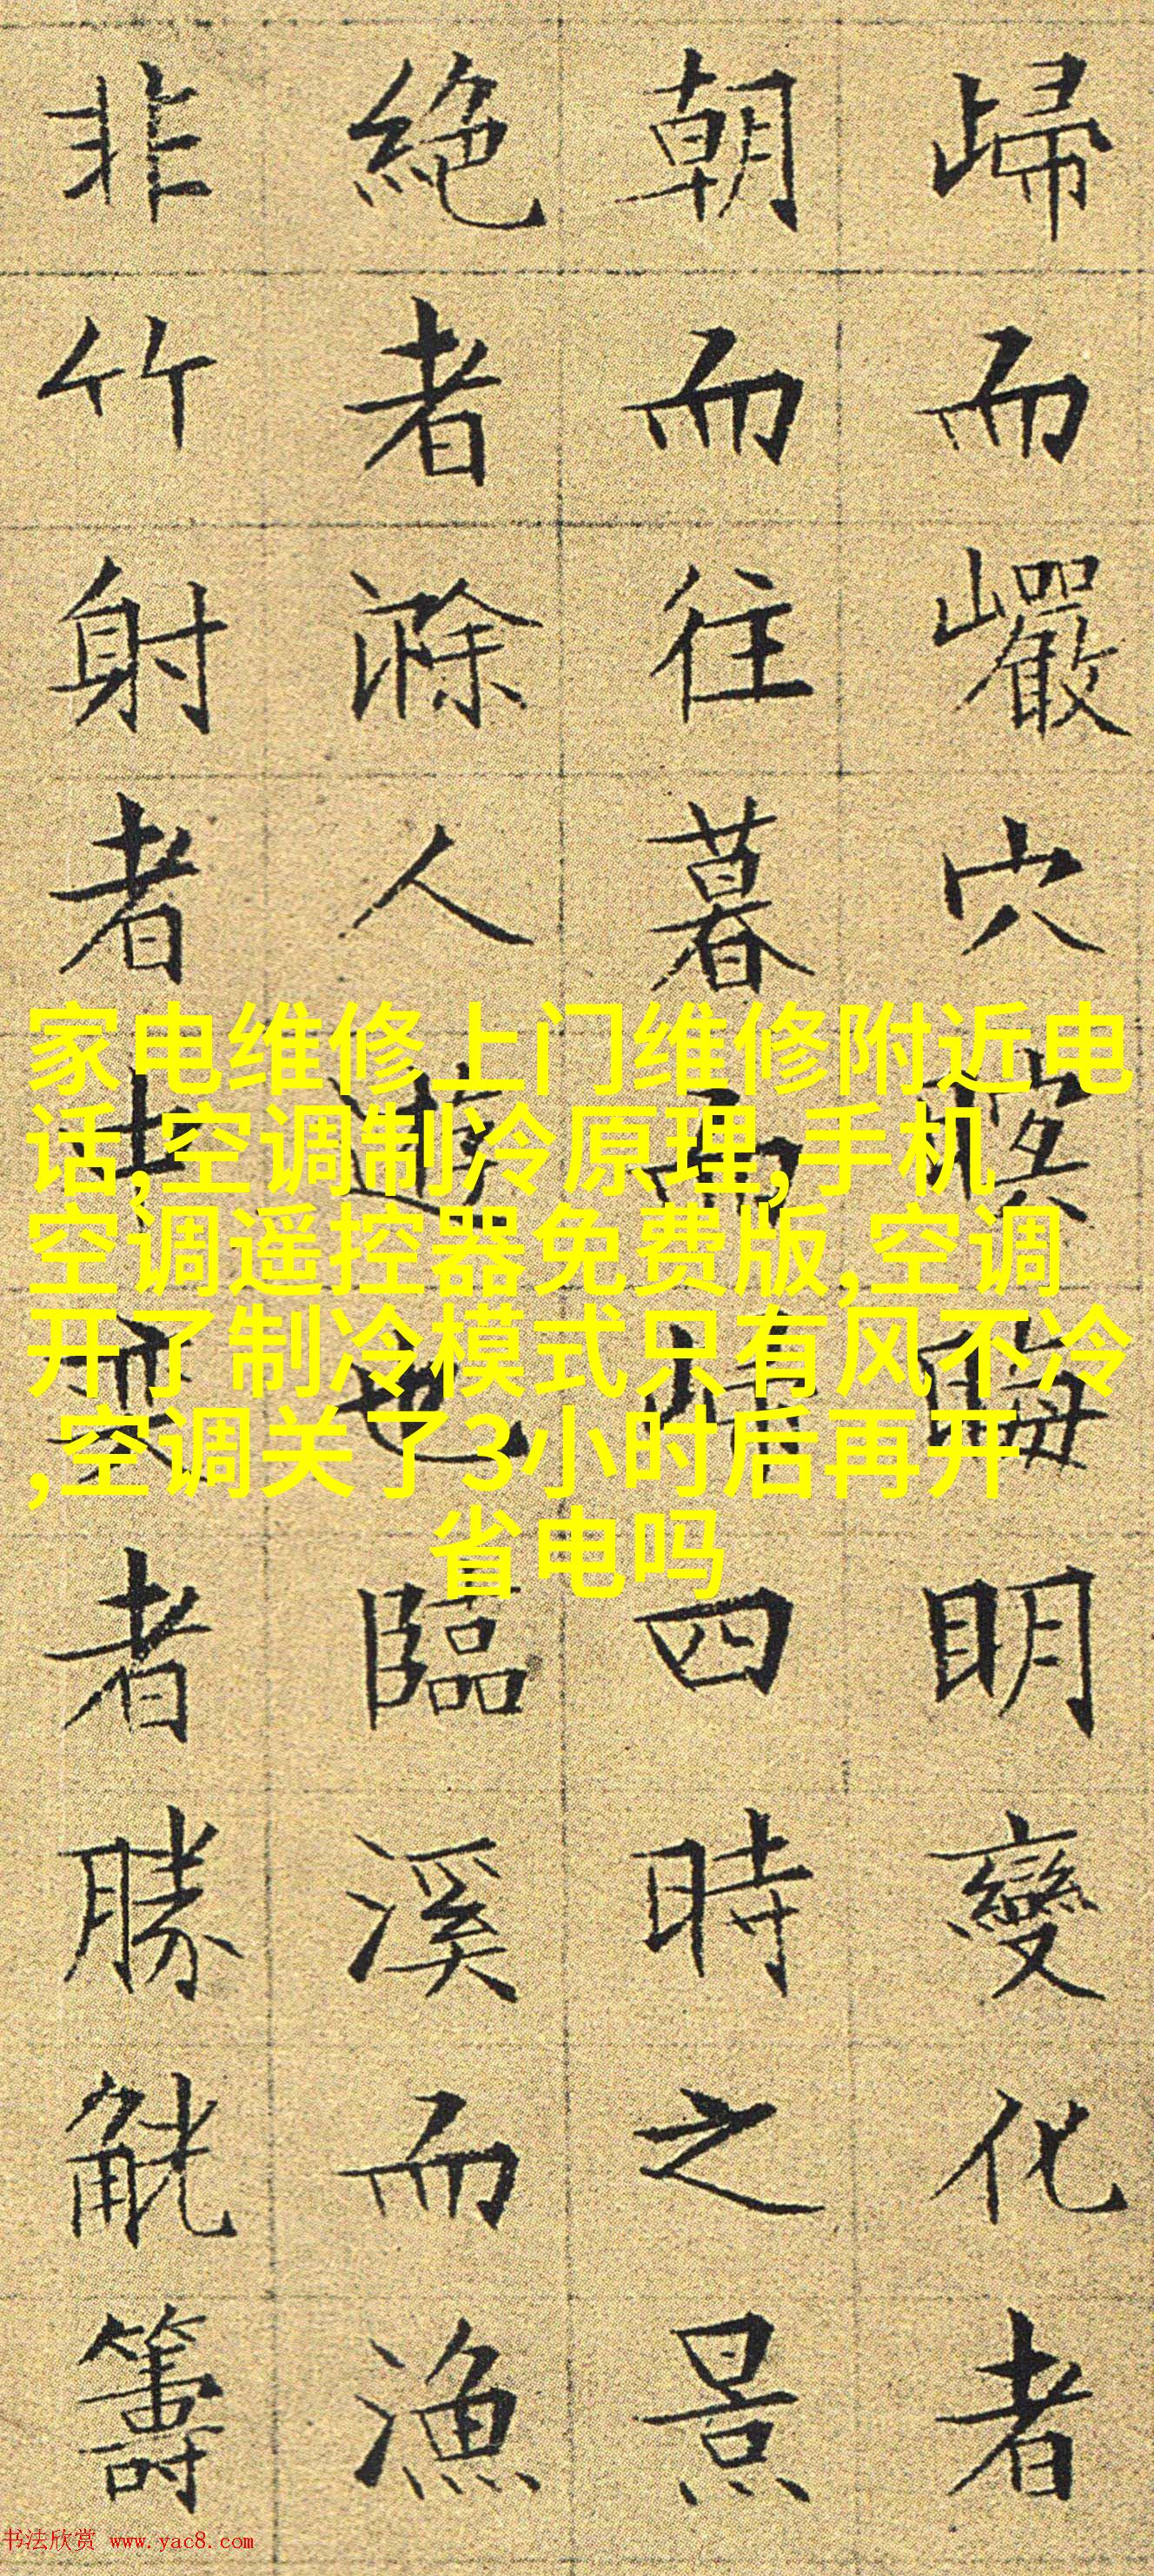 歸而巖穴暝晦明變化者
朝而往暮而歸四時之景
絕者滁人遊也臨溪而漁
非竹射者中弈者勝觥籌
家电维修上门维修附近电
话,空调制冷原理,手机
空调遥控器免费版,空调
开了制冷模式只有风不冷
,空调关了3小时后再开
省电吗
书法欣赏 www.yac8.com